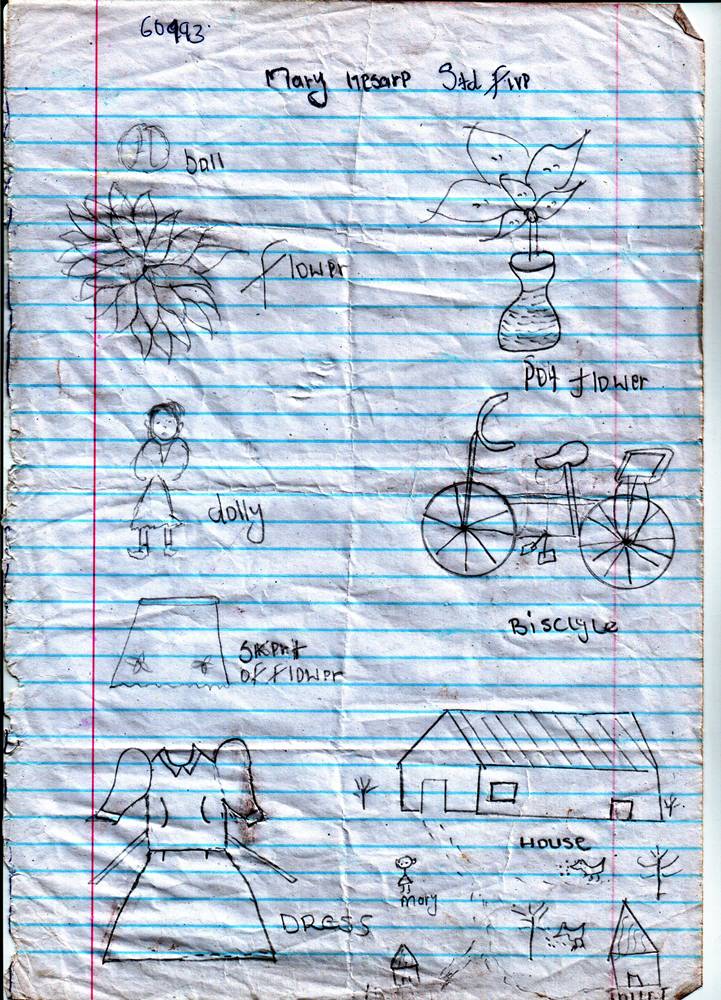 60993
Mary Mesarp Std Five
ball
flower
Pot flower
dolly
Bisclyle
Skert
of flower
HOUSE
Mary
DRESS